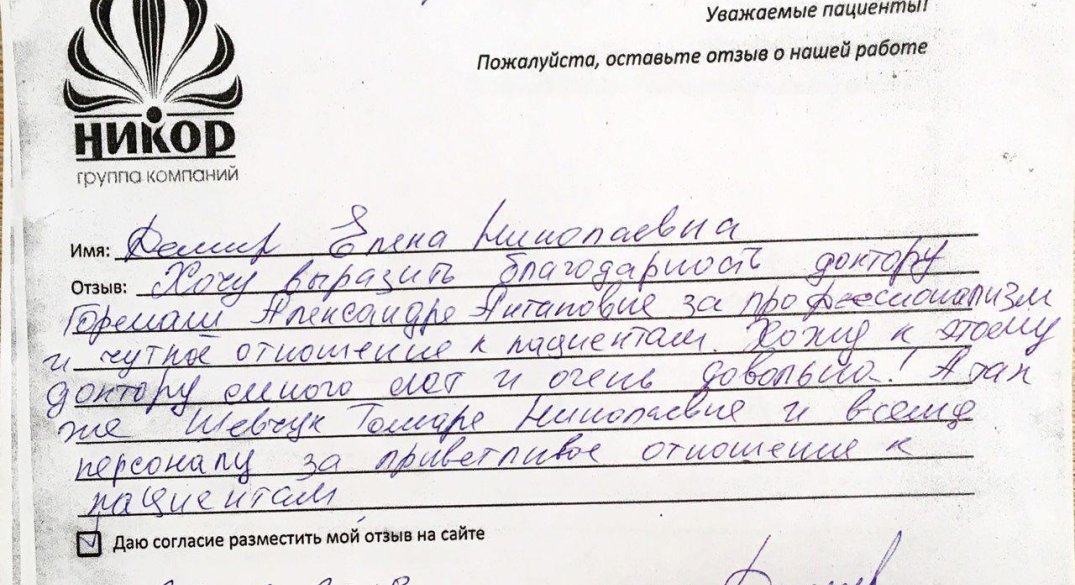 Уважаемые пациенты!
Пожалуйста, оставьте отзыв о нашей работе
НИКОР
группа компаний
Имя: Демир Елена Николаевна
Отзыв: Хочу выразить благодарность доктору
Александре Антаповне за профессионализм
и чуткое отношение к пациентам. Хожу к этому
доктору много лет и очень довольна! А так
же Шевчук Тамаре Николаевне и всему
персоналу за приветливое отношение к
пациентам
Даю согласие разместить мой отзыв на сайте